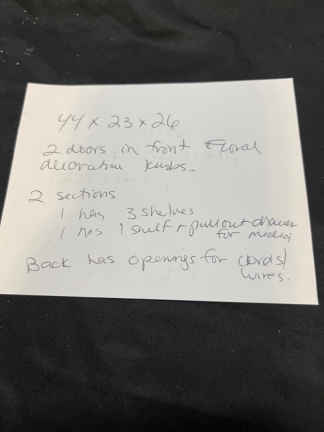 44 x 23 x 26
2 doors in front Floral
decorative knobs.
2 sections
1 has 3 shelves
1 has 1 shelf + pullout drawer
for media
Back has openings for cords/
wires.